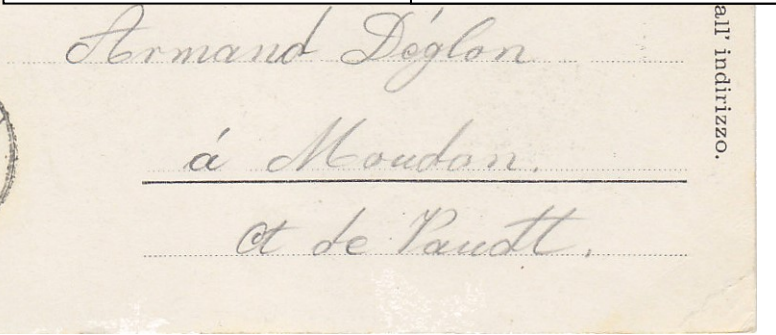 Armand Déglon
á Moudon.
Ct de Vaudt.
all' indirizzo.